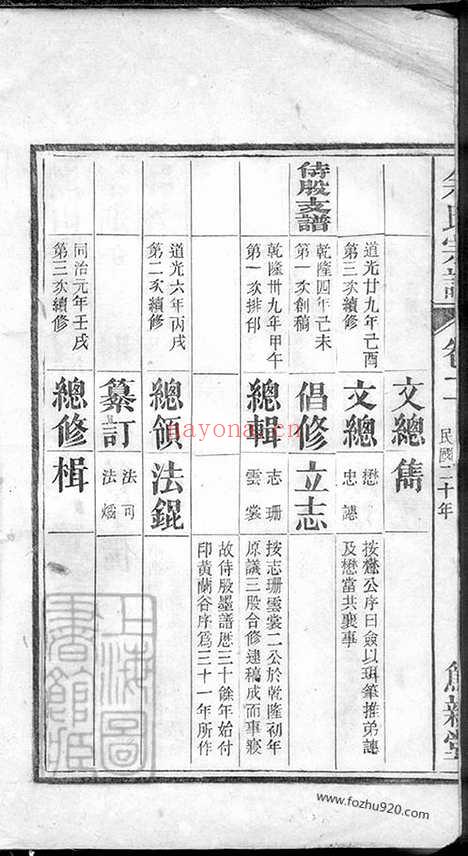 余氏宗譜
卷二
民國二十年
雋新堂
文總雋
道光廿九年己酉
第三次續修
文總
懋
忠謰
按懋公序曰僉以珥筆推弟謰
及懋當共襄事
侍股支譜
乾隆四年己未
第一次創稿
倡修立志
乾隆卅九年甲午
第一次排印
總輯
志珊
雲裳
按志珊雲裳二公於乾隆初年
原議三股合修逮稿成而事寢
故侍股墨譜歷三十餘年始付
印黃蘭谷序為三十一年所作
道光六年丙戌
第二次續修
總領法錕
纂訂
法司
法爔
同治元年壬戌
第三次續修
總修楫
上海圖書館藏
nayona.cn
www.fozhu920.com